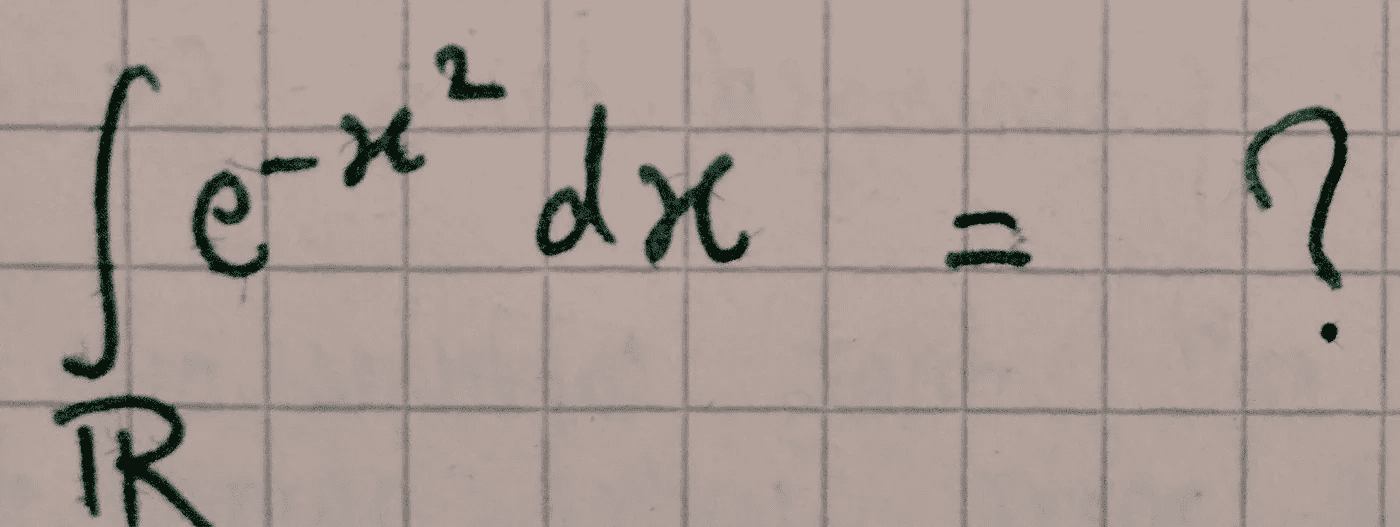 ∫_ℝ e^{-x^2} dx = ?